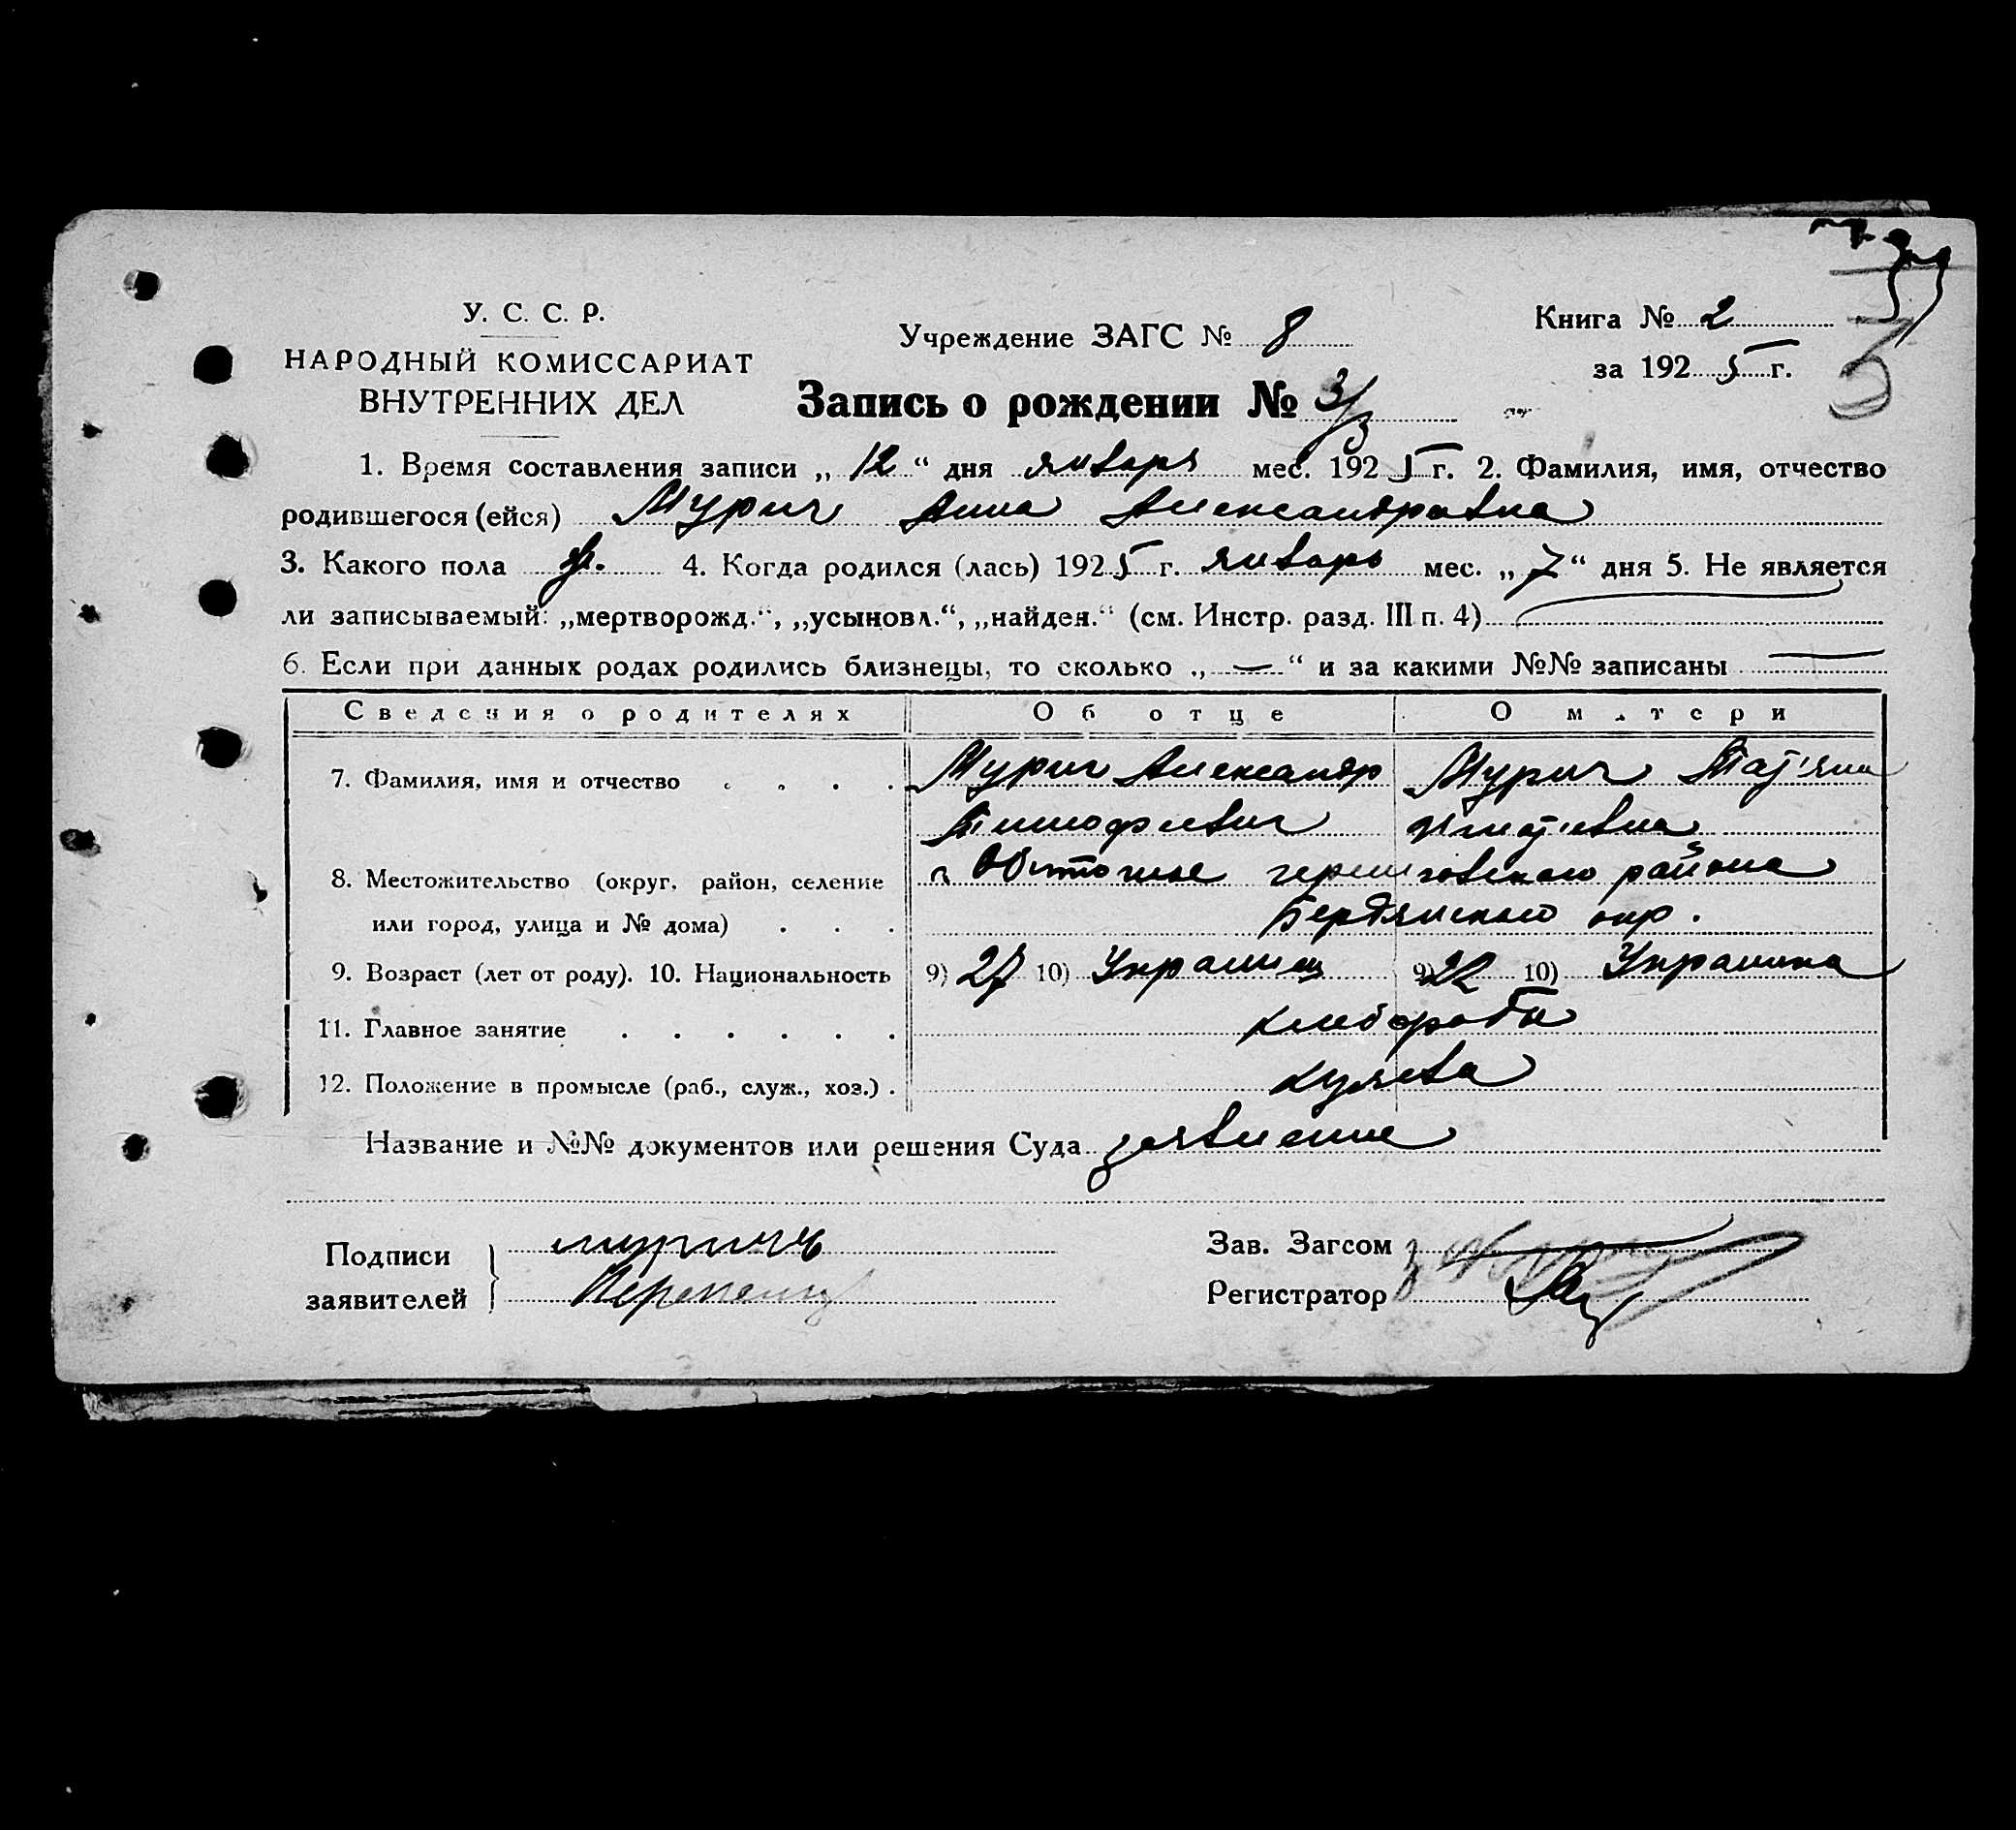 У. С. С. Р.
НАРОДНЫЙ КОМИССАРИАТ
ВНУТРЕННИХ ДЕЛ
Учреждение ЗАГС № 8
Книга № 2
за 192 5 г.
3
Запись о рождении № 3/3
1. Время составления записи „ 12 “ дня января мес. 192 5 г. 2. Фамилия, имя, отчество
родившегося (ейся) Мурич Анна Александровна
3. Какого пола ж. 4. Когда родился (лась) 192 5 г. январь мес. „ 7 “ дня 5. Не является
ли записываемый: „мертворожд.“, „усыновл.“, „найден.“ (см. Инстр. разд. III п. 4)
6. Если при данных родах родились близнецы, то сколько „ — “ и за какими №№ записаны —
Сведения о родителях Об отце О матери
7. Фамилия, имя и отчество . . . . Мурич Александр Мурич Тат'яна
Тимофеевич Игнат'евна
8. Местожительство (округ, район, селение с Обиточное черниговского района
или город, улица и № дома) . . . Бердянского окр.
9. Возраст (лет от роду). 10. Национальность 9) 27 10) Украинец 9) 22 10) Украинка
11. Главное занятие . . . . . . хлебороби
12. Положение в промысле (раб., служ., хоз.) .
Название и №№ документов или решения Суда заявление
Подписи муричъ Зав. Загсом
заявителей Регистратор